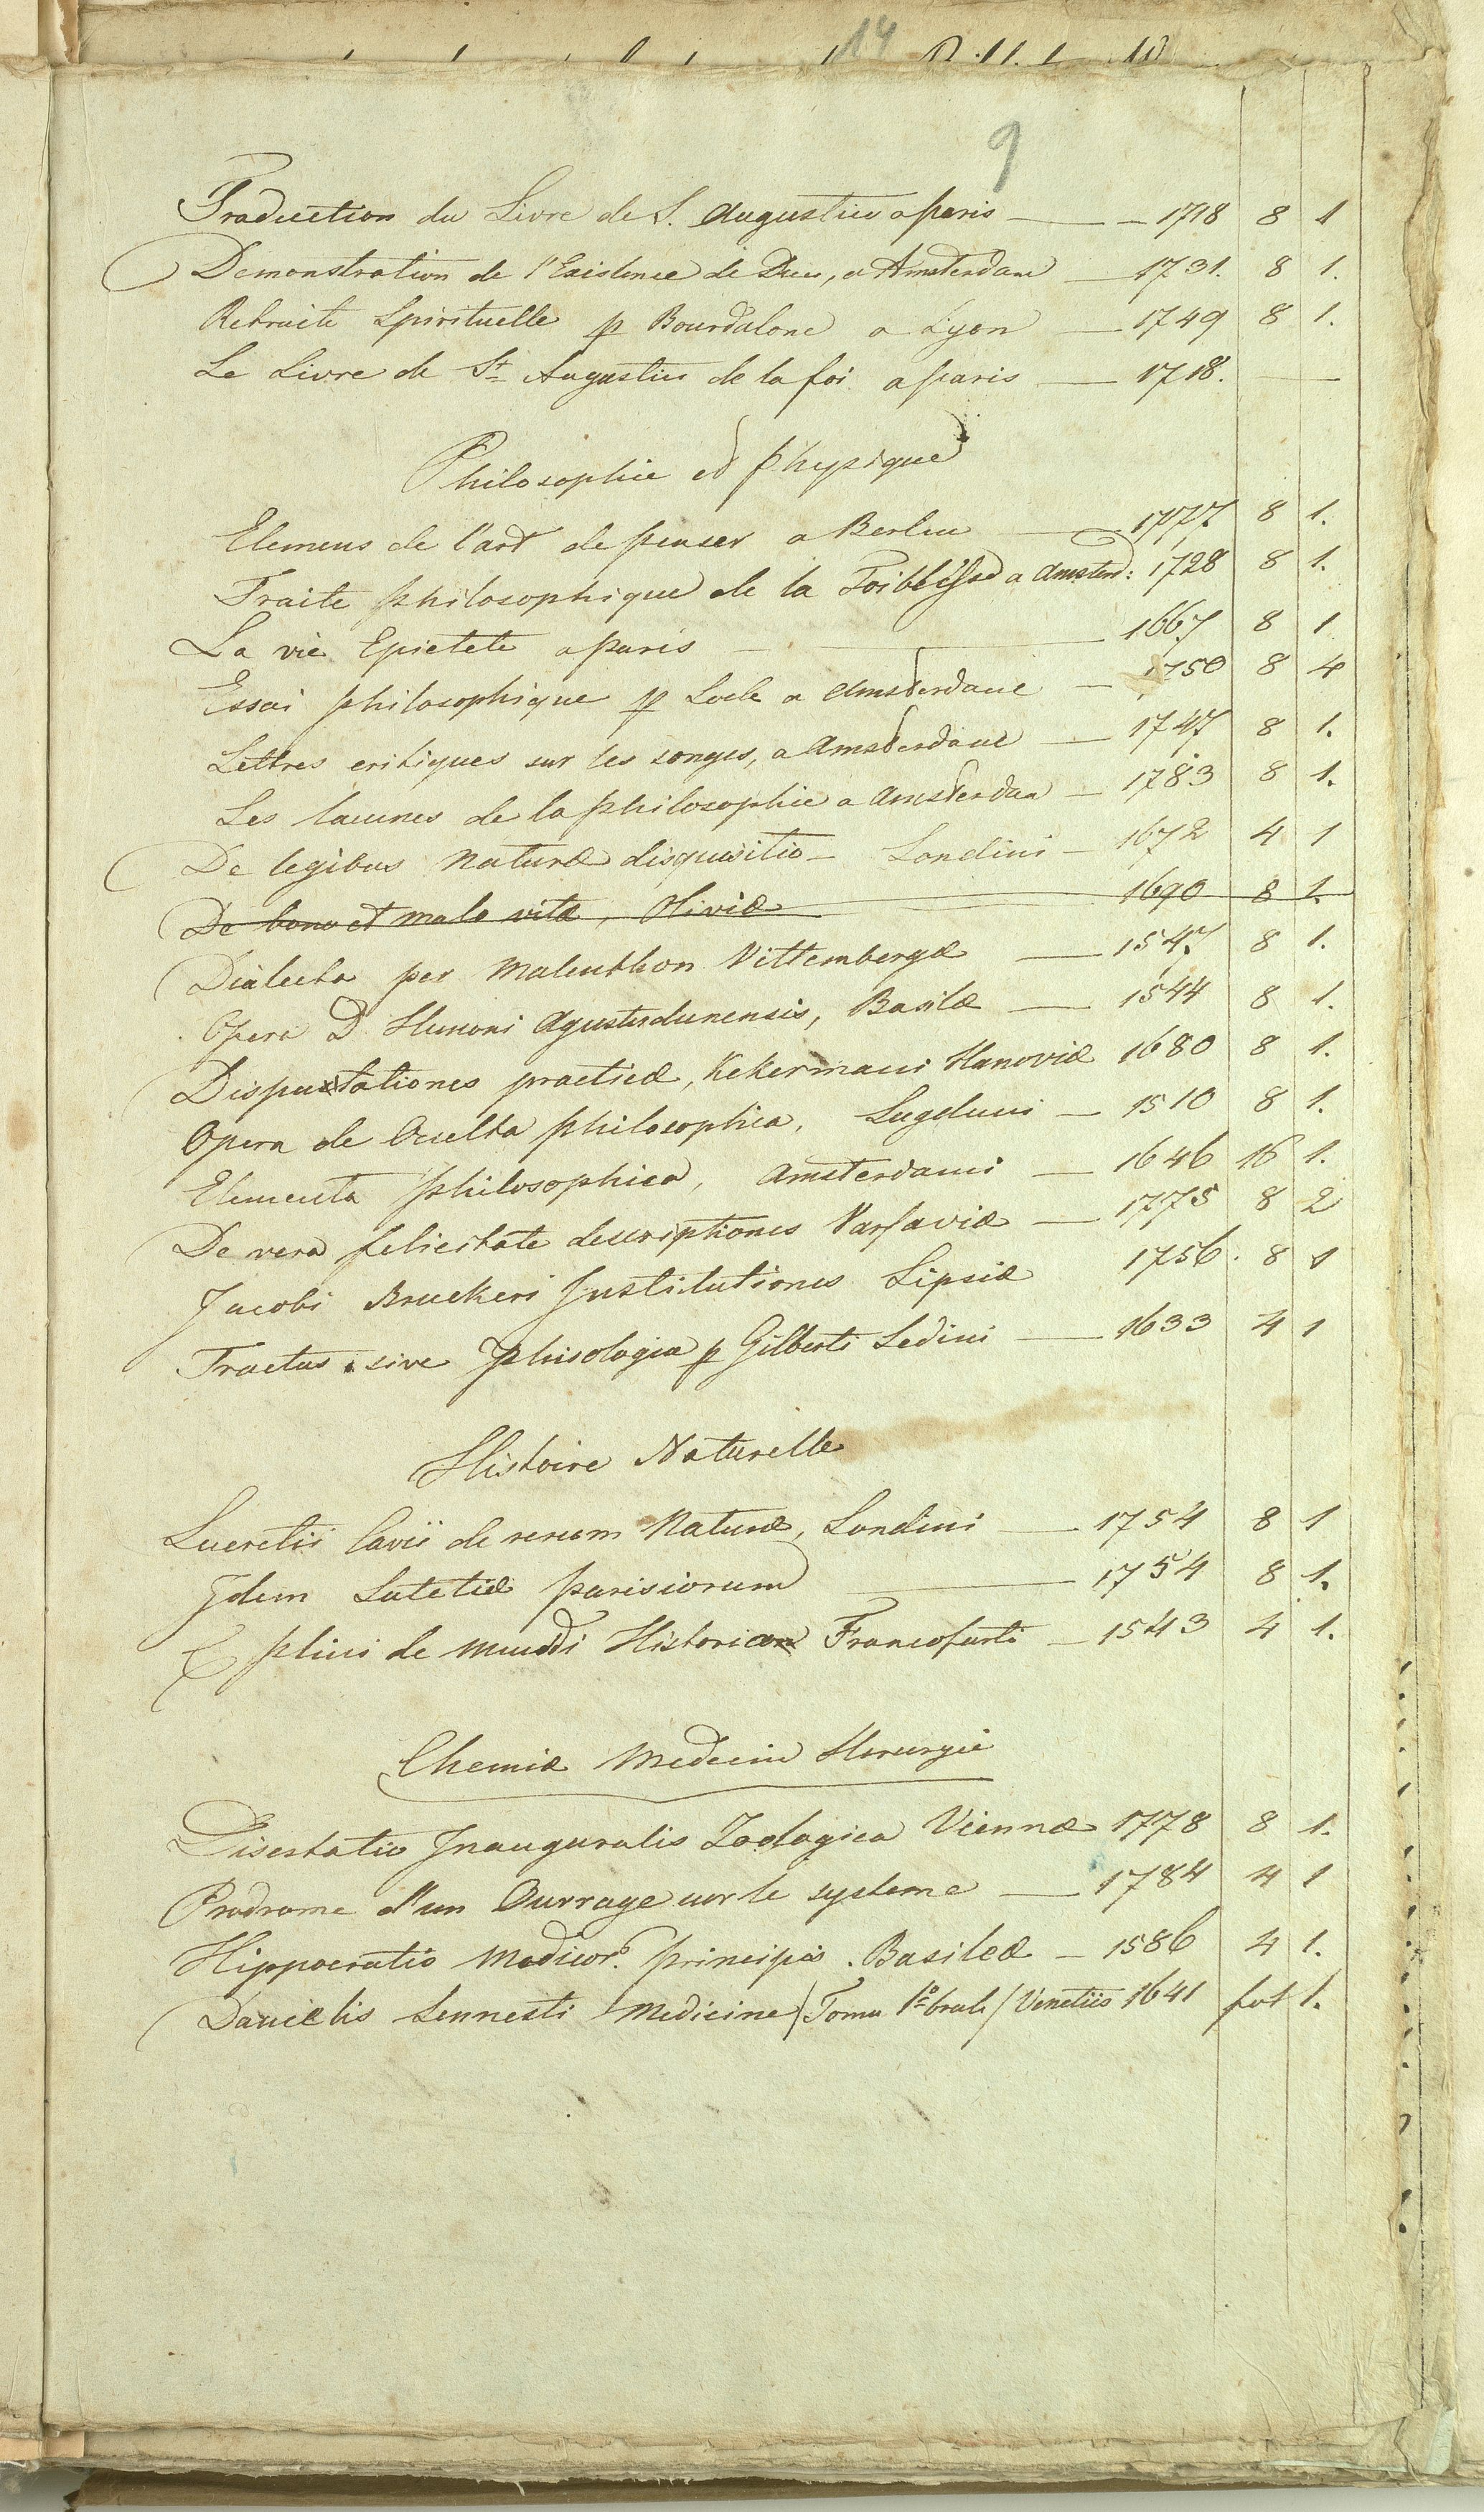 14
9
Traduction du Livre de S. Augustin a paris — 1718 8 1
Demonstration de l'Existence de Dieu, a Amsterdam — 1731. 8 1.
Retraite Spirituelle p Bourdalone a Lyon — 1749 8 1.
Le Livre de St Augustin de la foi a paris — 1718. —
Philosophie et physique
Elemens de l'art de penser a Berlin — 1777 8 1.
Traite philosophique de la Foiblesse a Amsterd: 1728 8 1.
La vie Epictete a paris — 1667 8 1
Essai philosophique p Lock a Amsterdame — 1750 8 4
Lettres critiques sur les songes, a Amsterdame — 1747 8 1.
Les lacunes de la philosophie a Amsterdam — 1783 8 1.
De legibus Naturæ disquisitio — Londini — 1672 4 1
De bono et malo vitæ, Olivæ — 1690 8 1.
Dialecta per Malenthon Vittembergæ — 1547 8 1.
Opera D. Hunoni Agustudunensis, Basilæ — 1544 8 1.
Disputationes practicæ, Kekermani Hanoviæ 1680 8 1.
Opera de Oculta philosophia, Lugduni — 1510 8 1.
Elementa philosophica, Amsterdami — 1646 16 1.
De vera felicitate descriptiones Varsaviæ — 1775 8 2
Jacobi Bruckeri Institutiones Lipsiæ 1756. 8 1
Tractus sive phisologia p Gilberti Sedini — 1633 4 1
Histoire Naturelle
Lucretii Cavii de rerum Naturæ, Londini — 1754 8 1
Idem Lutetiæ parisiorum — 1754 8 1.
plini de Mundi Historiæ Francofurti — 1543 4 1.
Chemiæ Medecin Hirurgie
Disertatio Inauguralis Zoologica Viennæ 1778 8 1.
Prodrome d'un Ouvrage sur le systeme — 1784 4 1
Hippocratis Medicor. principis. Basileæ — 1586 4 1.
Danielis Sennesti Medicine / Tomu 1o / Venetiis 1641 fol 1.